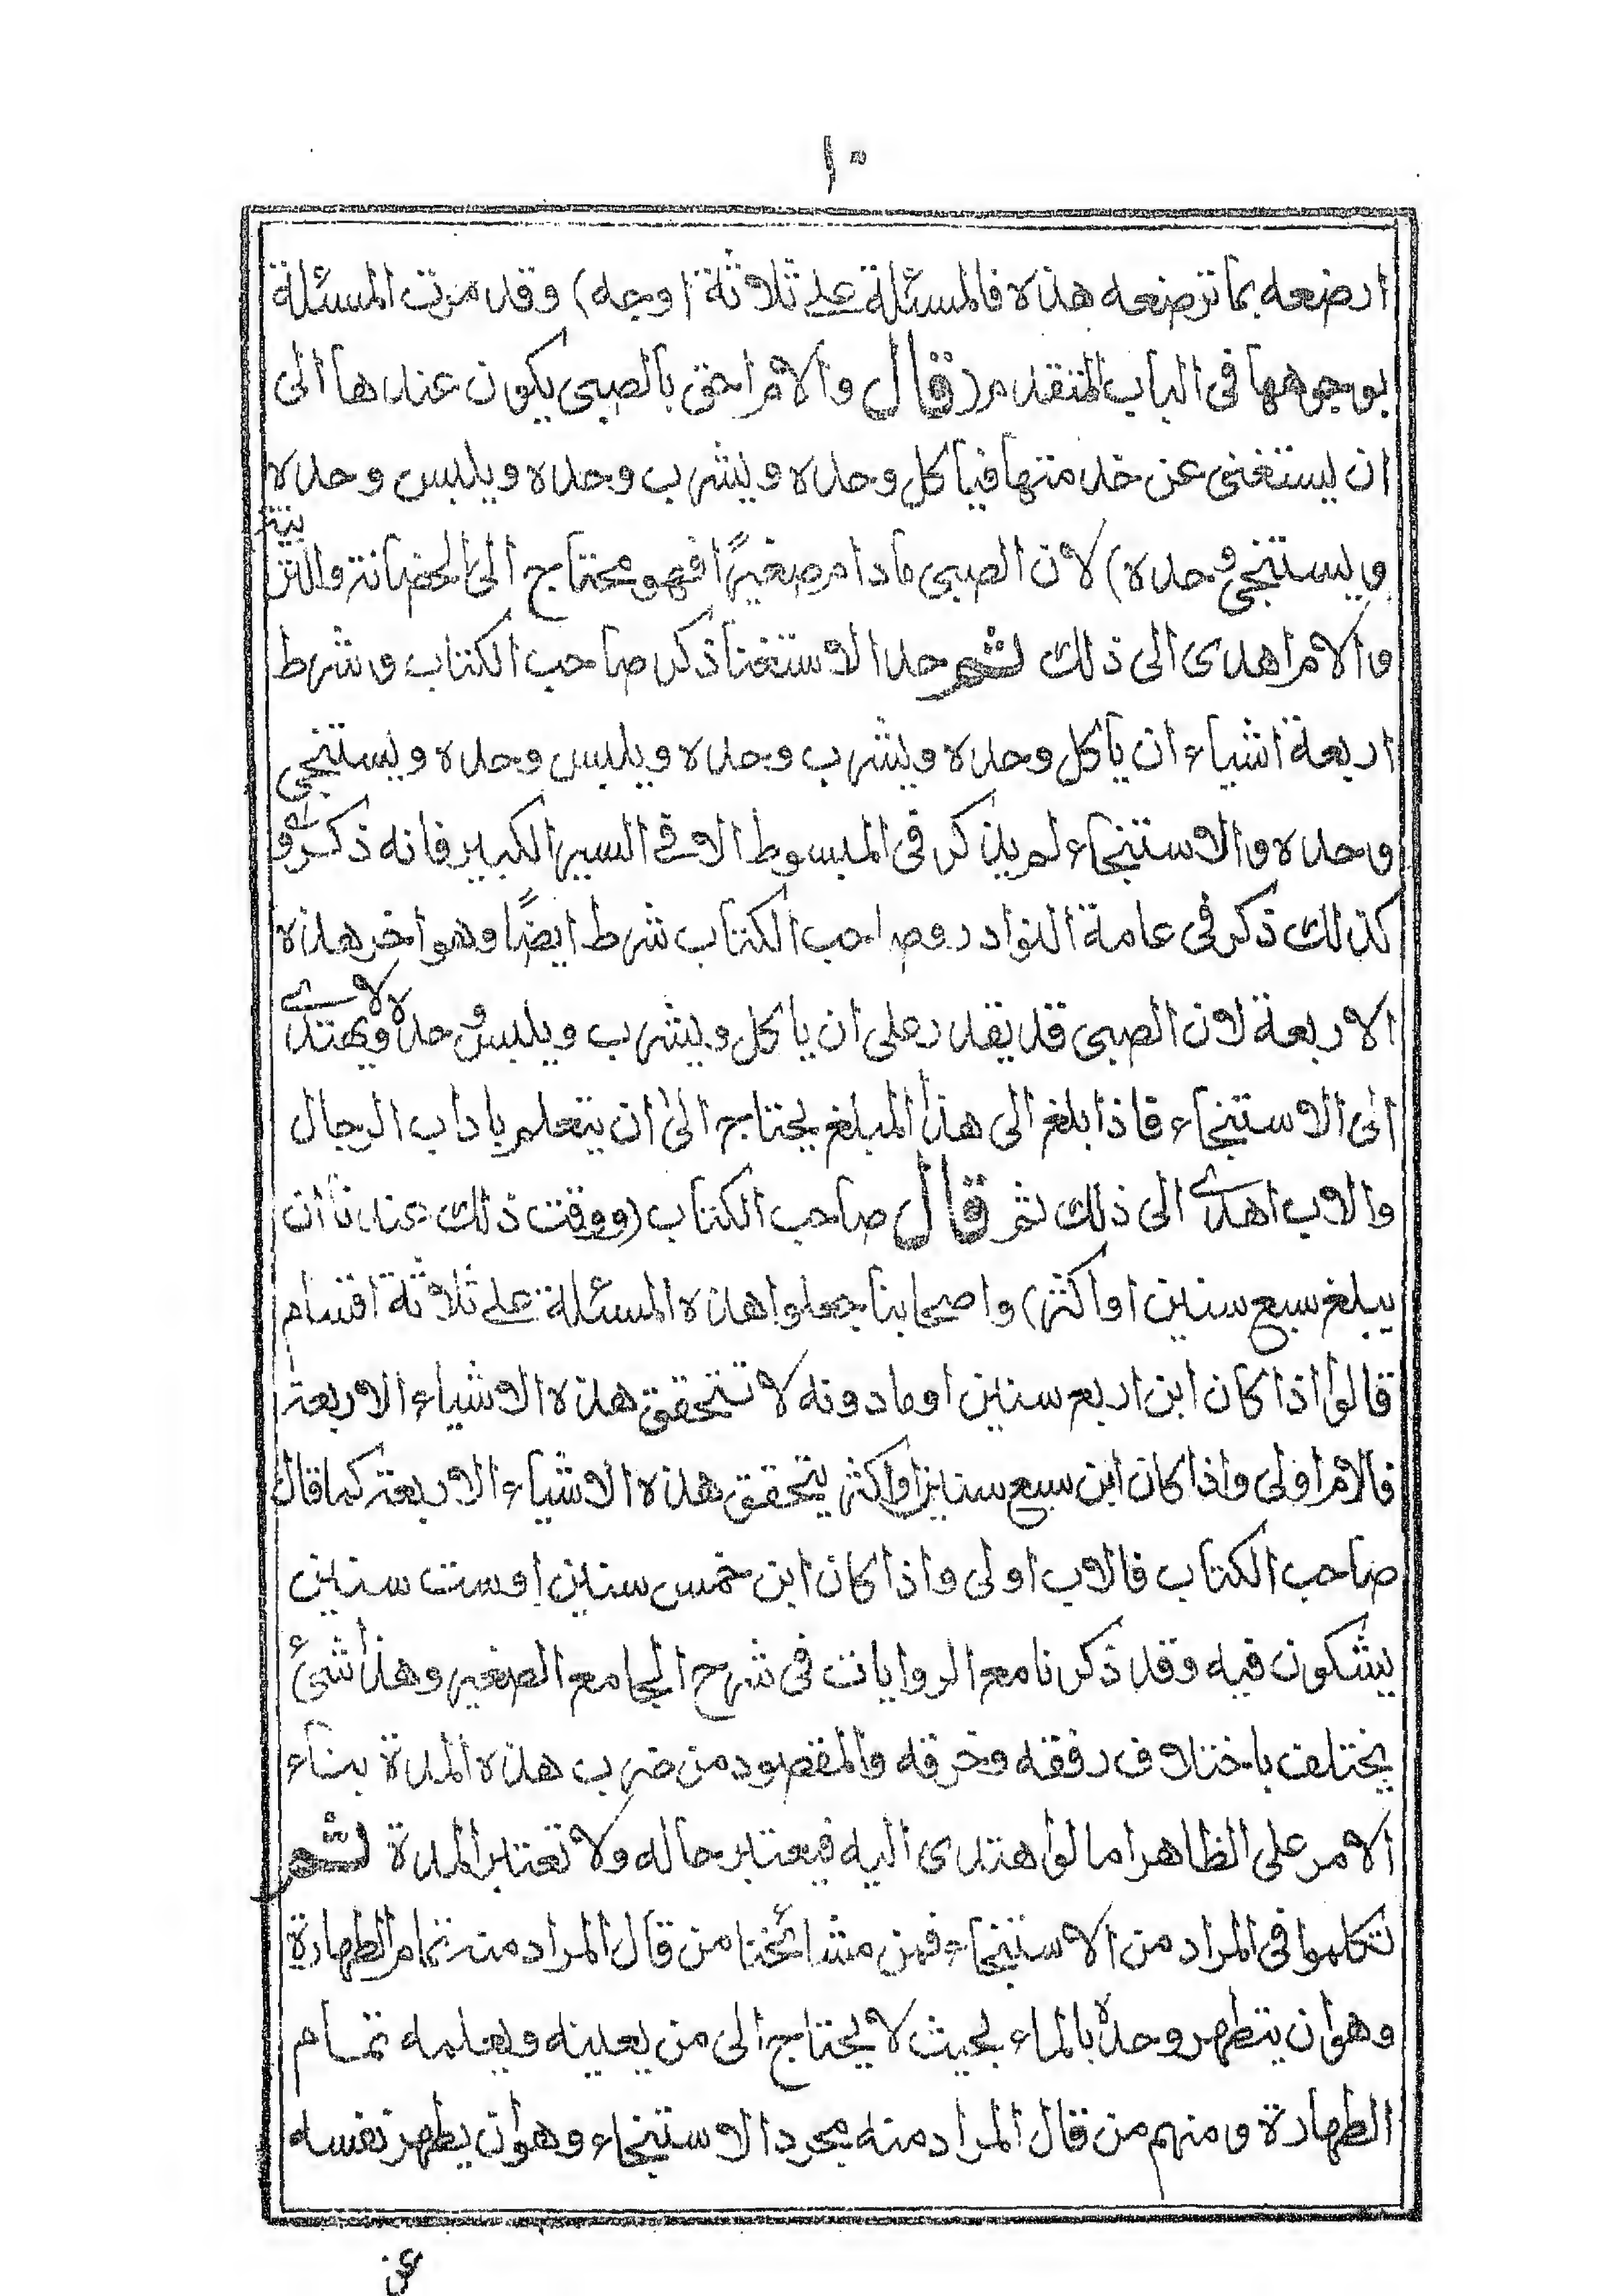 ١٠
ارضعه بما ترضعه هذه فالمسئلة على ثلاثة اوجه) وقد مرت المسئلة
بوجوهها فى الباب المتقدم (قال والام احق بالصبى يكون عندها الى
ان يستغنى عن خدمتها فياكل وحده ويشرب وحده ويلبس وحده
ويستنجى وحده) لان الصبى مادام صغيرًا فهو محتاج الى الحضانة والتربية
والام اهدى الى ذلك ثم حد الاستغنا ذكر صاحب الكتاب وشرط
اربعة اشياء ان ياكل وحده ويشرب وحده ويلبس وحده ويستنجى
وحده والاستنجاء لم يذكر فى المبسوط الا فى السير الكبير فانه ذكره و
كذلك ذكر فى عامة النوادر وصاحب الكتاب شرط ايضًا وهو اخر هذه
الاربعة لان الصبى قد يقدر على ان ياكل ويشرب ويلبس وحده ولا يهتدى
الى الاستنجاء فاذا بلغ الى هذا المبلغ يحتاج الى ان يتعلم باداب الرجال
والاب اهدى الى ذلك ثم قال صاحب الكتاب (ووقت ذلك عندنا ان
يبلغ سبع سنين اواكثر) واصحابنا جعلوا هذه المسئلة على ثلاثة اقسام
قالوا اذا كان ابن اربع سنين اومادونه لا تتحقق هذه الاشياء الاربعة
فالام اولى واذا كان ابن سبع سنين اواكثر يتحقق هذه الاشياء الاربعة كما قال
صاحب الكتاب فالاب اولى واذا كان ابن خمس سنين اوست سنين
يشكون فيه وقد ذكرنا مع الروايات فى شرح الجامع الصغير وهذا شئ
يختلف باختلاف رفقه وخرقه والمقصود من ضرب هذه المدة بناء
الامر على الظاهر اما لو اهتدى اليه فيعتبر حاله ولا تعتبر المدة ثم
تكلموا فى المراد من الاستنجاء فمن مشائخنا من قال المراد منه تمام الطهارة
وهو ان يتطهر وحده بالماء بحيث لا يحتاج الى من يعينه ويعلمه تمام
الطهارة ومنهم من قال المراد منه مجرد الاستنجاء وهو ان يطهر نفسه
عن